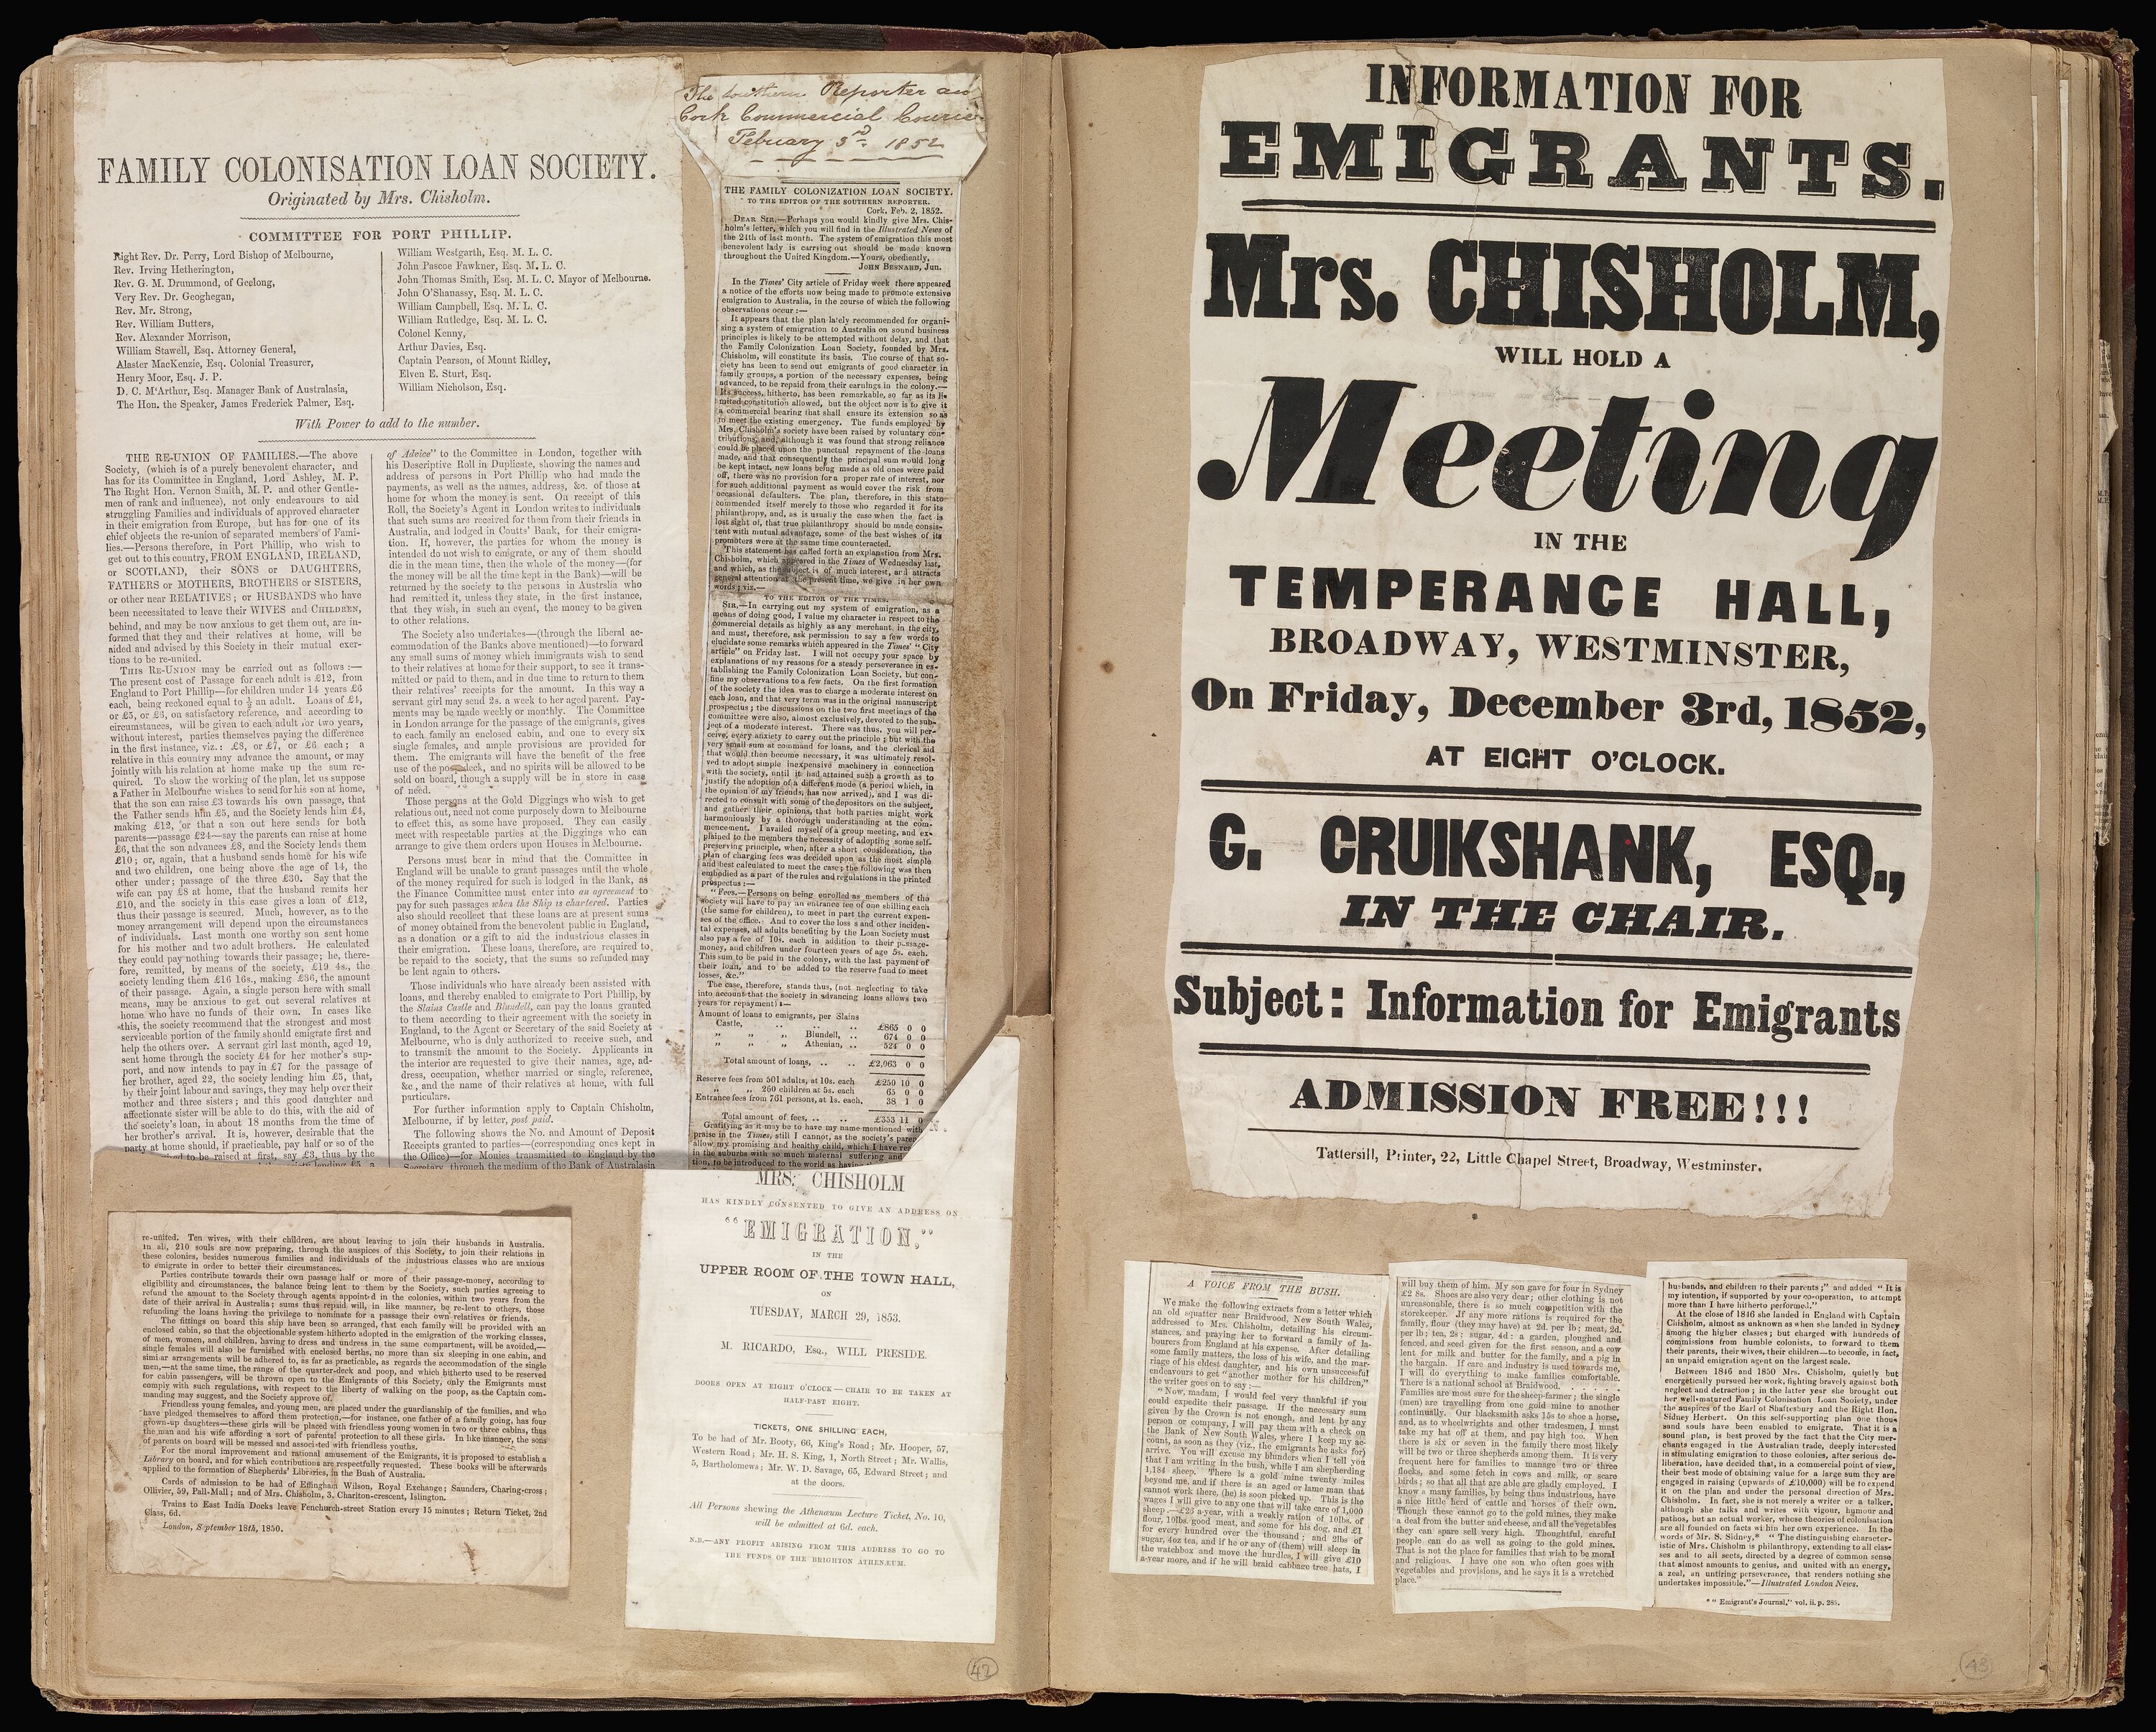 FAMILY COLONISATION LOAN SOCIETY.
Originated by Mrs. Chisholm.
COMMITTEE FOR PORT PHILLIP.
Right Rev. Dr. Perry, Lord Bishop of Melbourne,
Rev. Irving Hetherington,
Rev. G. M. Drummond, of Geelong,
Very Rev. Dr. Geoghegan,
Rev. Mr. Strong,
Rev. William Butters,
Rev. Alexander Morrison,
William Stawell, Esq. Attorney General,
Alaster MacKenzie, Esq. Colonial Treasurer,
Henry Moor, Esq. J. P.
D. C. M'Arthur, Esq. Manager Bank of Australasia,
The Hon. the Speaker, James Frederick Palmer, Esq.
William Westgarth, Esq. M. L. C.
John Pascoe Fawkner, Esq. M. L. C.
John Thomas Smith, Esq. M. L. C. Mayor of Melbourne.
John O'Shanassy, Esq. M. L. C.
William Campbell, Esq. M. L. C.
William Rutledge, Esq. M. L. C.
Colonel Kenny,
Arthur Davies, Esq.
Captain Pearson, of Mount Ridley,
Elven E. Sturt, Esq.
William Nicholson, Esq.
With Power to add to the number.
THE RE-UNION OF FAMILIES.—The above
Society, (which is of a purely benevolent character, and
has for its Committee in England, Lord Ashley, M. P.
The Right Hon. Vernon Smith, M. P. and other Gentle-
men of rank and influence), not only endeavours to aid
struggling Families and individuals of approved character
in their emigration from Europe, but has for one of its
chief objects the re-union of separated members of Fami-
lies.—Persons therefore, in Port Phillip, who wish to
get out to this country, FROM ENGLAND, IRELAND,
or SCOTLAND, their SONS or DAUGHTERS,
FATHERS or MOTHERS, BROTHERS or SISTERS,
or other near RELATIVES; or HUSBANDS who have
been necessitated to leave their WIVES and CHILDREN,
behind, and may be now anxious to get them out, are in-
formed that they and their relatives at home, will be
aided and advised by this Society in their mutual exer-
tions to be re-united.
THIS RE-UNION may be carried out as follows :—
The present cost of Passage for each adult is £12, from
England to Port Phillip—for children under 14 years £6
each, being reckoned equal to ½ an adult. Loans of £4,
or £5, or £6, on satisfactory reference, and according to
circumstances, will be given to each adult for two years,
without interest, parties themselves paying the difference
in the first instance, viz.: £8, or £7, or £6 each; a
relative in this country may advance the amount, or may
jointly with his relation at home make up the sum re-
quired. To show the working of the plan, let us suppose
a Father in Melbourne wishes to send for his son at home,
that the son can raise £3 towards his own passage, that
the Father sends him £5, and the Society lends him £4,
making £12, or that a son out here sends for both
parents—passage £24—say the parents can raise at home
£6, that the son advances £8, and the Society lends them
£10; or, again, that a husband sends home for his wife
and two children, one being above the age of 14, the
other under; passage of the three £30. Say that the
wife can pay £8 at home, that the husband remits her
£10, and the society in this case gives a loan of £12,
thus their passage is secured. Much, however, as to the
money arrangement will depend upon the circumstances
of individuals. Last month one worthy son sent home
for his mother and two adult brothers. He calculated
they could pay nothing towards their passage; he, there-
fore, remitted, by means of the society, £19 4s., the
society lending them £16 16s., making £36, the amount
of their passage. Again, a single person here with small
means, may be anxious to get out several relatives at
home who have no funds of their own. In cases like
this, the society recommend that the strongest and most
serviceable portion of the family should emigrate first and
help the others over. A servant girl last month, aged 19,
sent home through the society £4 for her mother's sup-
port, and now intends to pay in £7 for the passage of
her brother, aged 22, the society lending him £5, that,
by their joint labour and savings, they may help over their
mother and three sisters; and this good daughter and
affectionate sister will be able to do this, with the aid of
the society's loan, in about 18 months from the time of
her brother's arrival. It is, however, desirable that the
party at home should, if practicable, pay half or so of the
to be raised at first, say £3, thus by the
of Advice" to the Committee in London, together with
his Descriptive Roll in Duplicate, showing the names and
address of persons in Port Phillip who had made the
payments, as well as the names, address, &c. of those at
home for whom the money is sent. On receipt of this
Roll, the Society's Agent in London writes to individuals
that such sums are received for them from their friends in
Australia, and lodged in Coutts' Bank, for their emigra-
tion. If, however, the parties for whom the money is
intended do not wish to emigrate, or any of them should
die in the mean time, then the whole of the money—(for
the money will be all the time kept in the Bank)—will be
returned by the society to the persons in Australia who
had remitted it, unless they state, in the first instance,
that they wish, in such an event, the money to be given
to other relations.
The Society also undertakes—(through the liberal ac-
commodation of the Banks above mentioned)—to forward
any small sums of money which immigrants wish to send
to their relatives at home for their support, to see it trans-
mitted or paid to them, and in due time to return to them
their relatives' receipts for the amount. In this way a
servant girl may send 2s. a week to her aged parent. Pay-
ments may be made weekly or monthly. The Committee
in London arrange for the passage of the emigrants, gives
to each family an enclosed cabin, and one to every six
single females, and ample provisions are provided for
them. The emigrants will have the benefit of the free
use of the poop deck, and no spirits will be allowed to be
sold on board, though a supply will be in store in case
of need.
Those persons at the Gold Diggings who wish to get
relations out, need not come purposely down to Melbourne
to effect this, as some have proposed. They can easily
meet with respectable parties at the Diggings who can
arrange to give them orders upon Houses in Melbourne.
Persons must bear in mind that the Committee in
England will be unable to grant passages until the whole
of the money required for such is lodged in the Bank, as
the Finance Committee must enter into an agreement to
pay for such passages when the Ship is chartered. Parties
also should recollect that these loans are at present sums
of money obtained from the benevolent public in England,
as a donation or a gift to aid the industrious classes in
their emigration. These loans, therefore, are required to
be repaid to the society, that the sums so refunded may
be lent again to others.
Those individuals who have already been assisted with
loans, and thereby enabled to emigrate to Port Phillip, by
the Slains Castle and Blundell, can pay the loans granted
to them according to their agreement with the society in
England, to the Agent or Secretary of the said Society at
Melbourne, who is duly authorized to receive such, and
to transmit the amount to the Society. Applicants in
the interior are requested to give their names, age, ad-
dress, occupation, whether married or single, reference,
&c., and the name of their relatives at home, with full
particulars.
For further information apply to Captain Chisholm,
Melbourne, if by letter, post paid.
The following shows the No. and Amount of Deposit
Receipts granted to parties—(corresponding ones kept in
the Office)—for Monies transmitted to England by the
Secretary, through the medium of the Bank of Australasia
The Southern Reporter and
Cork Commercial Courier
February 3rd 1852
THE FAMILY COLONIZATION LOAN SOCIETY.
TO THE EDITOR OF THE SOUTHERN REPORTER.
Cork, Feb. 2, 1852.
DEAR SIR,—Perhaps you would kindly give Mrs. Chis-
holm's letter, which you will find in the Illustrated News of
the 24th of last month. The system of emigration this most
benevolent lady is carrying out should be made known
throughout the United Kingdom.—Yours, obediently,
JOHN BESNARD, Jun.
In the Times' City article of Friday week there appeared
a notice of the efforts now being made to promote extensive
emigration to Australia, in the course of which the following
observations occur :—
It appears that the plan lately recommended for organi-
sing a system of emigration to Australia on sound business
principles is likely to be attempted without delay, and that
the Family Colonization Loan Society, founded by Mrs.
Chisholm, will constitute its basis. The course of that so-
ciety has been to send out emigrants of good character in
family groups, a portion of the necessary expenses, being
advanced, to be repaid from their earnings in the colony.—
Its success, hitherto, has been remarkable, so far as its li-
mited constitution allowed, but the object now is to give it
a commercial bearing that shall ensure its extension so as
to meet the existing emergency. The funds employed by
Mrs. Chisholm's society have been raised by voluntary con-
tributions, and, although it was found that strong reliance
could be placed upon the punctual repayment of the loans
made, and that consequently the principal sum would long
be kept intact, new loans being made as old ones were paid
off, there was no provision for a proper rate of interest, nor
for such additional payment as would cover the risk from
occasional defaulters. The plan, therefore, in this state
commended itself merely to those who regarded it for its
philanthropy, and, as is usually the case when the fact is
lost sight of, that true philanthropy should be made consis-
tent with mutual advantage, some of the best wishes of its
promoters were at the same time counteracted.
This statement has called forth an explanation from Mrs.
Chisholm, which appeared in the Times of Wednesday last,
and which, as the subject is of much interest, and attracts
general attention at the present time, we give in her own
words; viz.—
TO THE EDITOR OF THE TIMES.
SIR,—In carrying out my system of emigration, as a
means of doing good, I value my character in respect to the
commercial details as highly as any merchant in the city,
and must, therefore, ask permission to say a few words to
elucidate some remarks which appeared in the Times' "City
article" on Friday last. I will not occupy your space by
explanations of my reasons for a steady perseverance in es-
tablishing the Family Colonization Loan Society, but con-
fine my observations to a few facts. On the first formation
of the society the idea was to charge a moderate interest on
each loan, and that very term was in the original manuscript
prospectus; the discussions on the two first meetings of the
committee were also, almost exclusively, devoted to the sub-
ject of a moderate interest. There was thus, you will per-
ceive, every anxiety to carry out the principle; but with the
very small sum at command for loans, and the clerical aid
that would then become necessary, it was ultimately resol-
ved to adopt simple inexpensive machinery in connection
with the society, until it had attained such a growth as to
justify the adoption of a different mode (a period which, in
the opinion of my friends, has now arrived), and I was di-
rected to consult with some of the depositors on the subject,
and gather their opinions, that both parties might work
harmoniously by a thorough understanding at the com-
mencement. I availed myself of a group meeting, and ex-
plained to the members the necessity of adopting some self-
preserving principle, when, after a short consideration, the
plan of charging fees was decided upon as the most simple
and best calculated to meet the case; the following was then
embodied as a part of the rules and regulations in the printed
prospectus:—
"Fees.—Persons on being enrolled as members of the
society will have to pay an entrance fee of one shilling each
(the same for children), to meet in part the current expen-
ses of the office. And to cover the loss and other inciden-
tal expenses, all adults benefiting by the Loan Society must
also pay a fee of 10s. each in addition to their passage-
money, and children under fourteen years of age 5s. each.
This sum to be paid in the colony, with the last payment of
their loan, and to be added to the reserve fund to meet
losses, &c."
The case, therefore, stands thus, (not neglecting to take
into account that the society in advancing loans allows two
years for repayment):—
Amount of loans to emigrants, per Slains
Castle, .. .. .. £865 0 0
" " " Blundell, .. 674 0 0
" " " Athenian, .. 524 0 0
Total amount of loans, .. .. £2,063 0 0
Reserve fees from 501 adults, at 10s. each £250 10 0
" 260 children at 5s. each 65 0 0
Entrance fees from 761 persons, at 1s. each, 38 1 0
Total amount of fees, .. .. £353 11 0
Gratifying as it may be to have my name mentioned with
praise in the Times, still I cannot, as the society's
allow my promising and healthy child, which I have
in the suburbs with so much maternal suffering and
tion, to be introduced to the world as having
re-united. Ten wives, with their children, are about leaving to join their husbands in Australia.
In all, 210 souls are now preparing, through the auspices of this Society, to join their relations in
these colonies, besides numerous families and individuals of the industrious classes who are anxious
to emigrate in order to better their circumstances.
Parties contribute towards their own passage half or more of their passage-money, according to
eligibility and circumstances, the balance being lent to them by the Society, such parties agreeing to
refund the amount to the Society through agents appointed in the colonies, within two years from the
date of their arrival in Australia; sums thus repaid will, in like manner, be re-lent to others, those
refunding the loans having the privilege to nominate for a passage their own relatives or friends.
The fittings on board this ship have been so arranged, that each family will be provided with an
enclosed cabin, so that the objectionable system hitherto adopted in the emigration of the working classes,
of men, women, and children, having to dress and undress in the same compartment, will be avoided,—
single females will also be furnished with enclosed berths, no more than six sleeping in one cabin, and
similar arrangements will be adhered to, as far as practicable, as regards the accommodation of the single
men,—at the same time, the range of the quarter-deck and poop, and which hitherto used to be reserved
for cabin passengers, will be thrown open to the Emigrants of this Society, only the Emigrants must
comply with such regulations, with respect to the liberty of walking on the poop, as the Captain com-
manding may suggest, and the Society approve of.
Friendless young females, and young men, are placed under the guardianship of the families, and who
have pledged themselves to afford them protection,—for instance, one father of a family going, has four
grown-up daughters—these girls will be placed with friendless young women in two or three cabins, thus
the man and his wife affording a sort of parental protection to all these girls. In like manner, the sons
of parents on board will be messed and associated with friendless youths.
For the moral improvement and rational amusement of the Emigrants, it is proposed to establish a
Library on board, and for which contributions are respectfully requested. These books will be afterwards
applied to the formation of Shepherds' Libraries, in the Bush of Australia.
Cards of admission to be had of Effingham Wilson, Royal Exchange; Saunders, Charing-cross;
Ollivier, 59, Pall-Mall; and of Mrs. Chisholm, 3, Charlton-crescent, Islington.
Trains to East India Docks leave Fenchurch-street Station every 15 minutes; Return Ticket, 2nd
Class, 6d.
London, September 18th, 1850.
MRS. CHISHOLM
HAS KINDLY CONSENTED TO GIVE AN ADDRESS ON
"EMIGRATION,"
IN THE
UPPER ROOM OF THE TOWN HALL,
ON
TUESDAY, MARCH 29, 1853.
M. RICARDO, Esq., WILL PRESIDE.
DOORS OPEN AT EIGHT O'CLOCK—CHAIR TO BE TAKEN AT
HALF-PAST EIGHT.
TICKETS, ONE SHILLING EACH,
To be had of Mr. Booty, 66, King's Road; Mr. Hooper, 57,
Western Road; Mr. H. S. King, 1, North Street; Mr. Wallis,
5, Bartholomews; Mr. W. D. Savage, 65, Edward Street; and
at the doors.
All Persons shewing the Athenæum Lecture Ticket, No. 10,
will be admitted at 6d. each.
N.B.—ANY PROFIT ARISING FROM THIS ADDRESS TO GO TO
THE FUNDS OF THE BRIGHTON ATHENÆUM.
42
INFORMATION FOR
EMIGRANTS.
Mrs. CHISHOLM,
WILL HOLD A
Meeting
IN THE
TEMPERANCE HALL,
BROADWAY, WESTMINSTER,
On Friday, December 3rd, 1852,
AT EIGHT O'CLOCK.
G. CRUIKSHANK, ESQ.,
IN THE CHAIR.
Subject: Information for Emigrants
ADMISSION FREE!!!
Tattersill, Printer, 22, Little Chapel Street, Broadway, Westminster.
A VOICE FROM THE BUSH.
We make the following extracts from a letter which
an odd squatter near Braidwood, New South Wales,
addressed to Mrs. Chisholm, detailing his circum-
stances, and praying her to forward a family of la-
bourers from England at his expense. After detailing
some family matters, the loss of his wife, and the mar-
riage of his eldest daughter, and his own unsuccessful
endeavours to get "another mother for his children,"
the writer goes on to say :—
"Now, madam, I would feel very thankful if you
could expedite their passage. If the necessary sum
given by the Crown is not enough, and lent by any
person or company, I will pay them with a check on
the Bank of New South Wales, where I keep my ac-
count, as soon as they (viz., the emigrants he asks for)
arrive. You will excuse my blunders when I tell you
that I am writing in the bush, while I am shepherding
1,184 sheep. There is a gold mine twenty miles
beyond me, and if there is an aged or lame man that
cannot work there, (he) is soon picked up. This is the
wages I will give to any one that will take care of 1,000
sheep.—£25 a-year, with a weekly ration of 10lbs. of
flour, 10lbs. good meat, and some for his dog, and £1
for every hundred over the thousand; and 2lbs of
sugar, 4oz tea, and if he or any of (them) will sleep in
the watchbox and move the hurdles, I will give £10
a-year more, and if he will braid cabbage tree hats, I
will buy them of him. My son gave for four in Sydney
£2 8s. Shoes are also very dear; other clothing is not
unreasonable, there is so much competition with the
storekeeper. If any more rations is required for the
family, flour (they may have) at 2d. per lb; meat, 2d.
per lb; tea, 2s; sugar, 4d: a garden, ploughed and
fenced, and seed given for the first season, and a cow
lent for milk and butter for the family, and a pig in
the bargain. If care and industry is used towards me,
I will do everything to make families comfortable.
There is a national school at Braidwood. . . . . .
Families are most sure for the sheep-farmer; the single
(men) are travelling from one gold mine to another
continually. Our blacksmith asks 15s to shoe a horse,
and, as to wheelwrights and other tradesmen, I must
take my hat off at them, and pay high too. When
there is six or seven in the family there most likely
will be two or three shepherds among them. It is very
frequent here for families to manage two or three
flocks, and some fetch in cows and milk, or scare
birds; so that all that are able are gladly employed. I
know a many families, by being thus industrious, have
a nice little herd of cattle and horses of their own.
Though these cannot go to the gold mines, they make
a deal from the butter and cheese, and all the vegetables
they can spare sell very high. Thoughtful, careful
people can do as well as going to the gold mines.
That is not the place for families that wish to be moral
and religious. I have one son who often goes with
vegetables and provisions, and he says it is a wretched
place."
husbands, and children to their parents;" and added "It is
my intention, if supported by your co-operation, to attempt
more than I have hitherto performed."
At the close of 1846 she landed in England with Captain
Chisholm, almost as unknown as when she landed in Sydney
among the higher classes; but charged with hundreds of
commissions from humble colonists, to forward to them
their parents, their wives, their children—to become, in fact,
an unpaid emigration agent on the largest scale.
Between 1846 and 1850 Mrs. Chisholm, quietly but
energetically pursued her work, fighting bravely against both
neglect and detraction; in the latter year she brought out
her well-matured Family Colonisation Loan Society, under
the auspices of the Earl of Shaftesbury and the Right Hon.
Sidney Herbert. On this self-supporting plan one thou-
sand souls have been enabled to emigrate. That it is a
sound plan, is best proved by the fact that the City mer-
chants engaged in the Australian trade, deeply interested
in stimulating emigration to those colonies, after serious de-
liberation, have decided that, in a commercial point of view,
their best mode of obtaining value for a large sum they are
engaged in raising (upwards of £10,000) will be to expend
it on the plan and under the personal direction of Mrs.
Chisholm. In fact, she is not merely a writer or a talker,
although she talks and writes with vigour, humour and
pathos, but an actual worker, whose theories of colonisation
are all founded on facts within her own experience. In the
words of Mr. S. Sidney,* "The distinguishing character-
istic of Mrs. Chisholm is philanthropy, extending to all clas-
ses and to all sects, directed by a degree of common sense
that almost amounts to genius, and united with an energy,
a zeal, an untiring perseverance, that renders nothing she
undertakes impossible."—Illustrated London News.
* "Emigrant's Journal," vol. ii. p. 285.
43